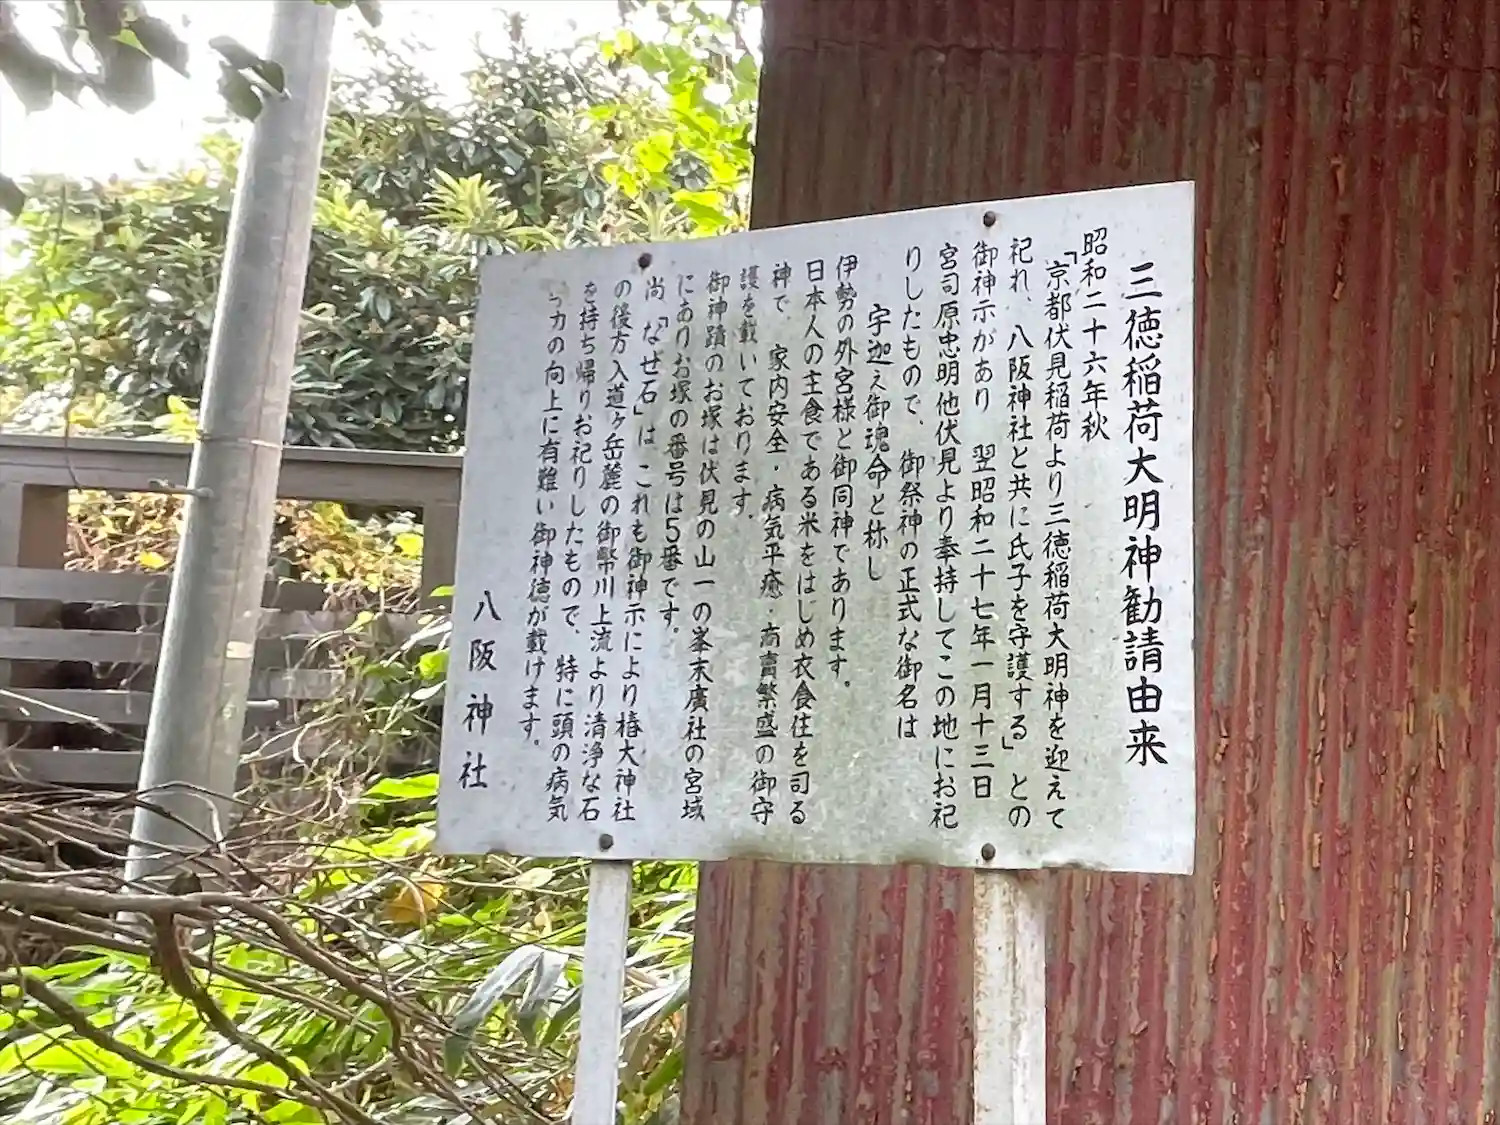 三徳稲荷大明神勧請由来
昭和二十六年秋
「京都伏見稲荷より三徳稲荷大明神を迎えて
祀れ、八阪神社と共に氏子を守護する」との
御神示があり　翌昭和二十七年一月十三日
宮司原忠明他伏見より奉持してこの地にお祀
りしたもので、御祭神の正式な御名は
宇迦え御魂命と称し
伊勢の外宮様と御同神であります。
日本人の主食である米をはじめ衣食住を司る
神で、家内安全・病気平癒・商売繁盛の御守
護を載いております．
御神蹟のお塚は伏見の山一の峯末廣社の宮域
にありお塚の番号は5番です。
尚「なぜ石」は これも御神示により椿大神社
の後方入道ヶ岳麓の御幣川上流より清浄な石
を持ち帰りお祀りしたもので、特に頭の病気
力の向上に有難い御神徳が載けます。
八阪神社